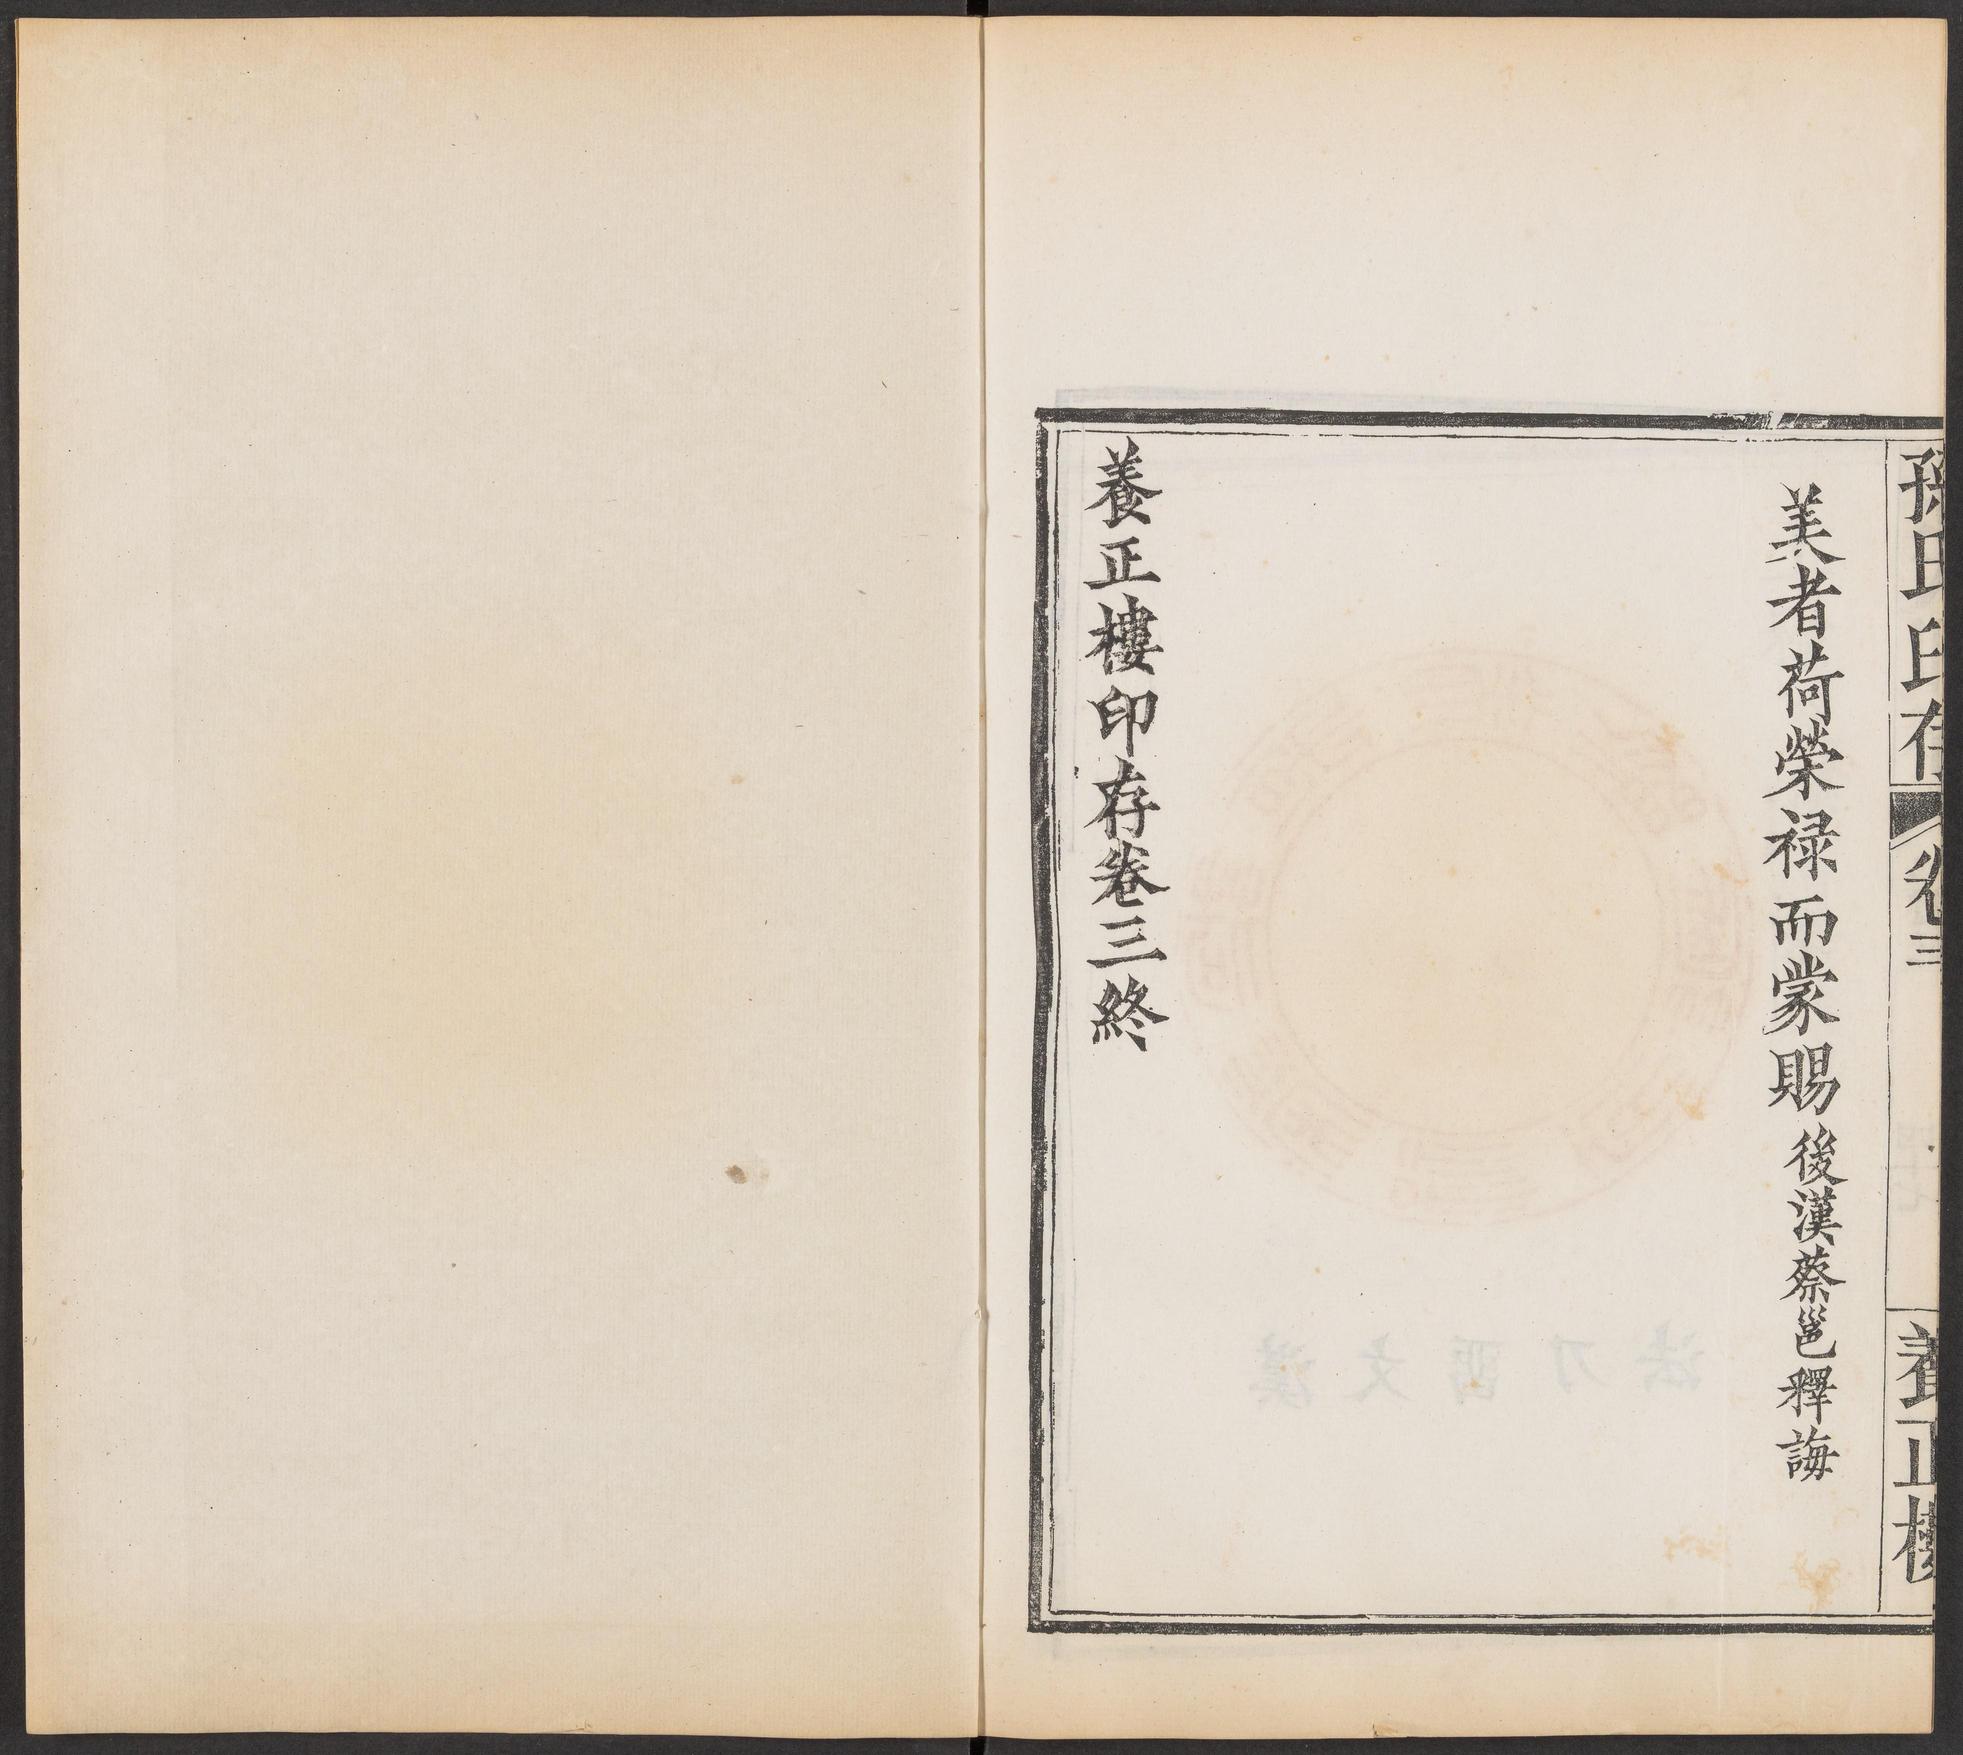 孫氏印存
卷三
養正樓
美者荷榮祿而蒙賜後漢蔡邕釋誨
養正樓印存卷三終